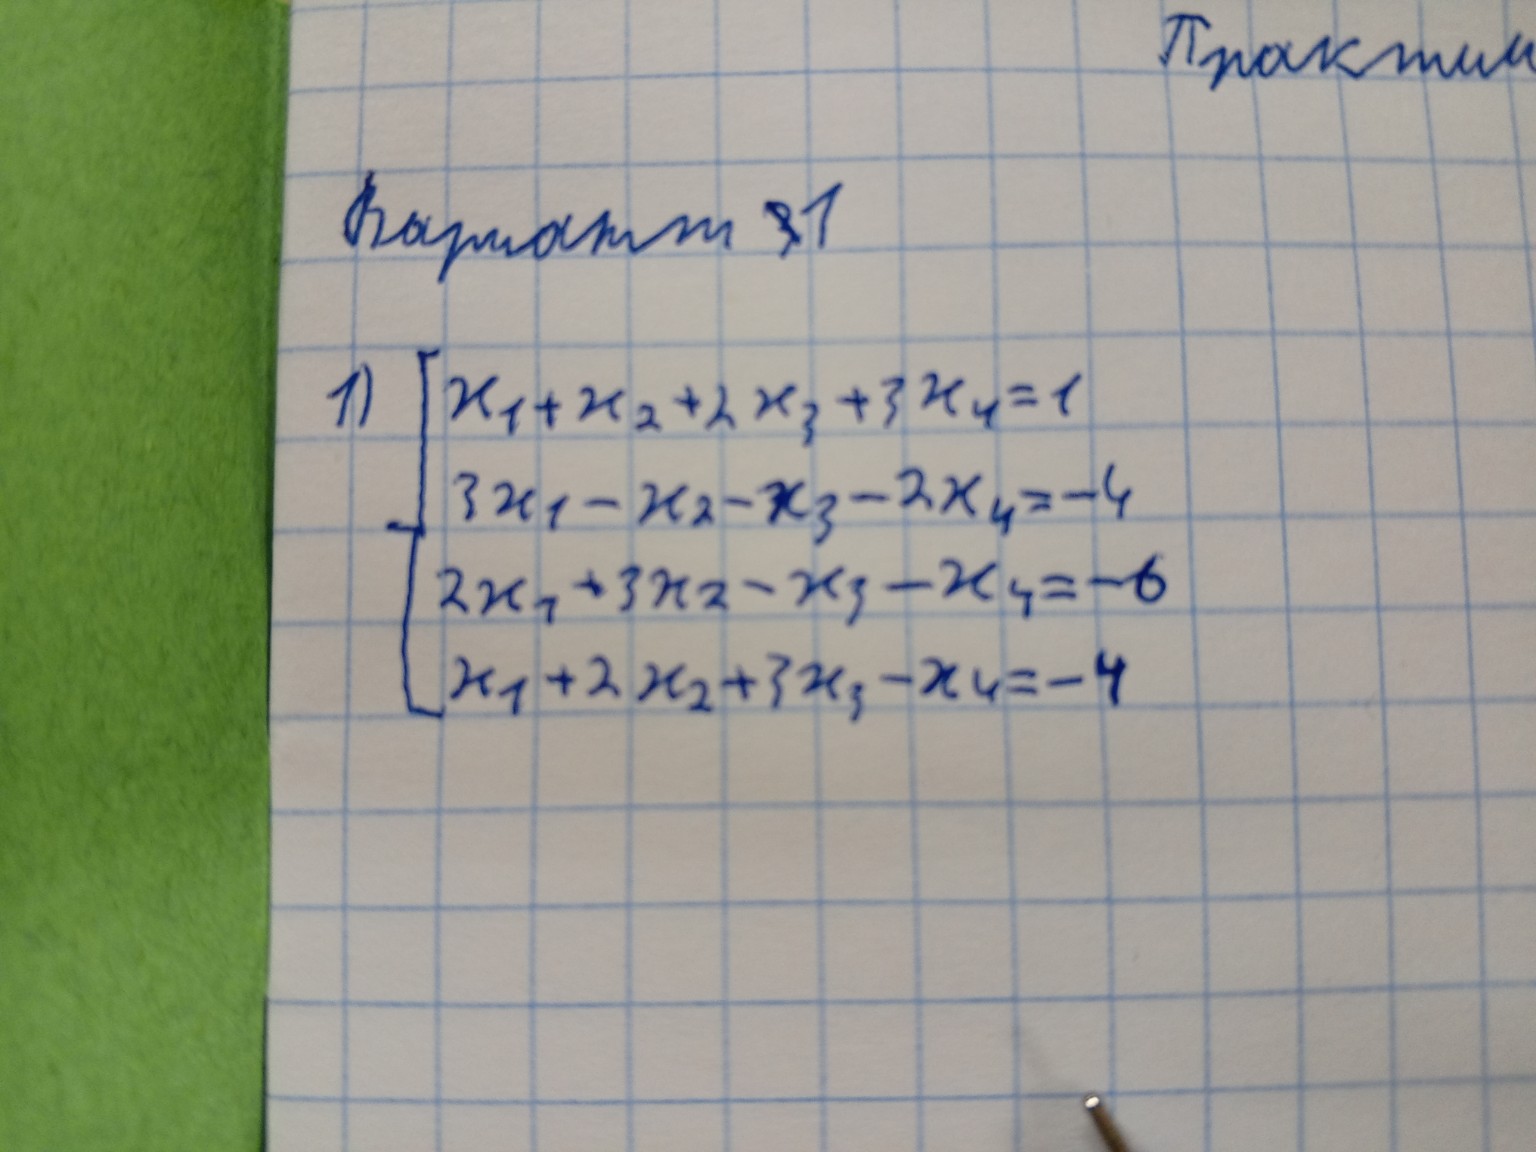 Вариант 31
1) x₁+x₂+2x₃+3x₄=1
3x₁-x₂-x₃-2x₄=-4
2x₁+3x₂-x₃-x₄=-6
x₁+2x₂+3x₃-x₄=-4